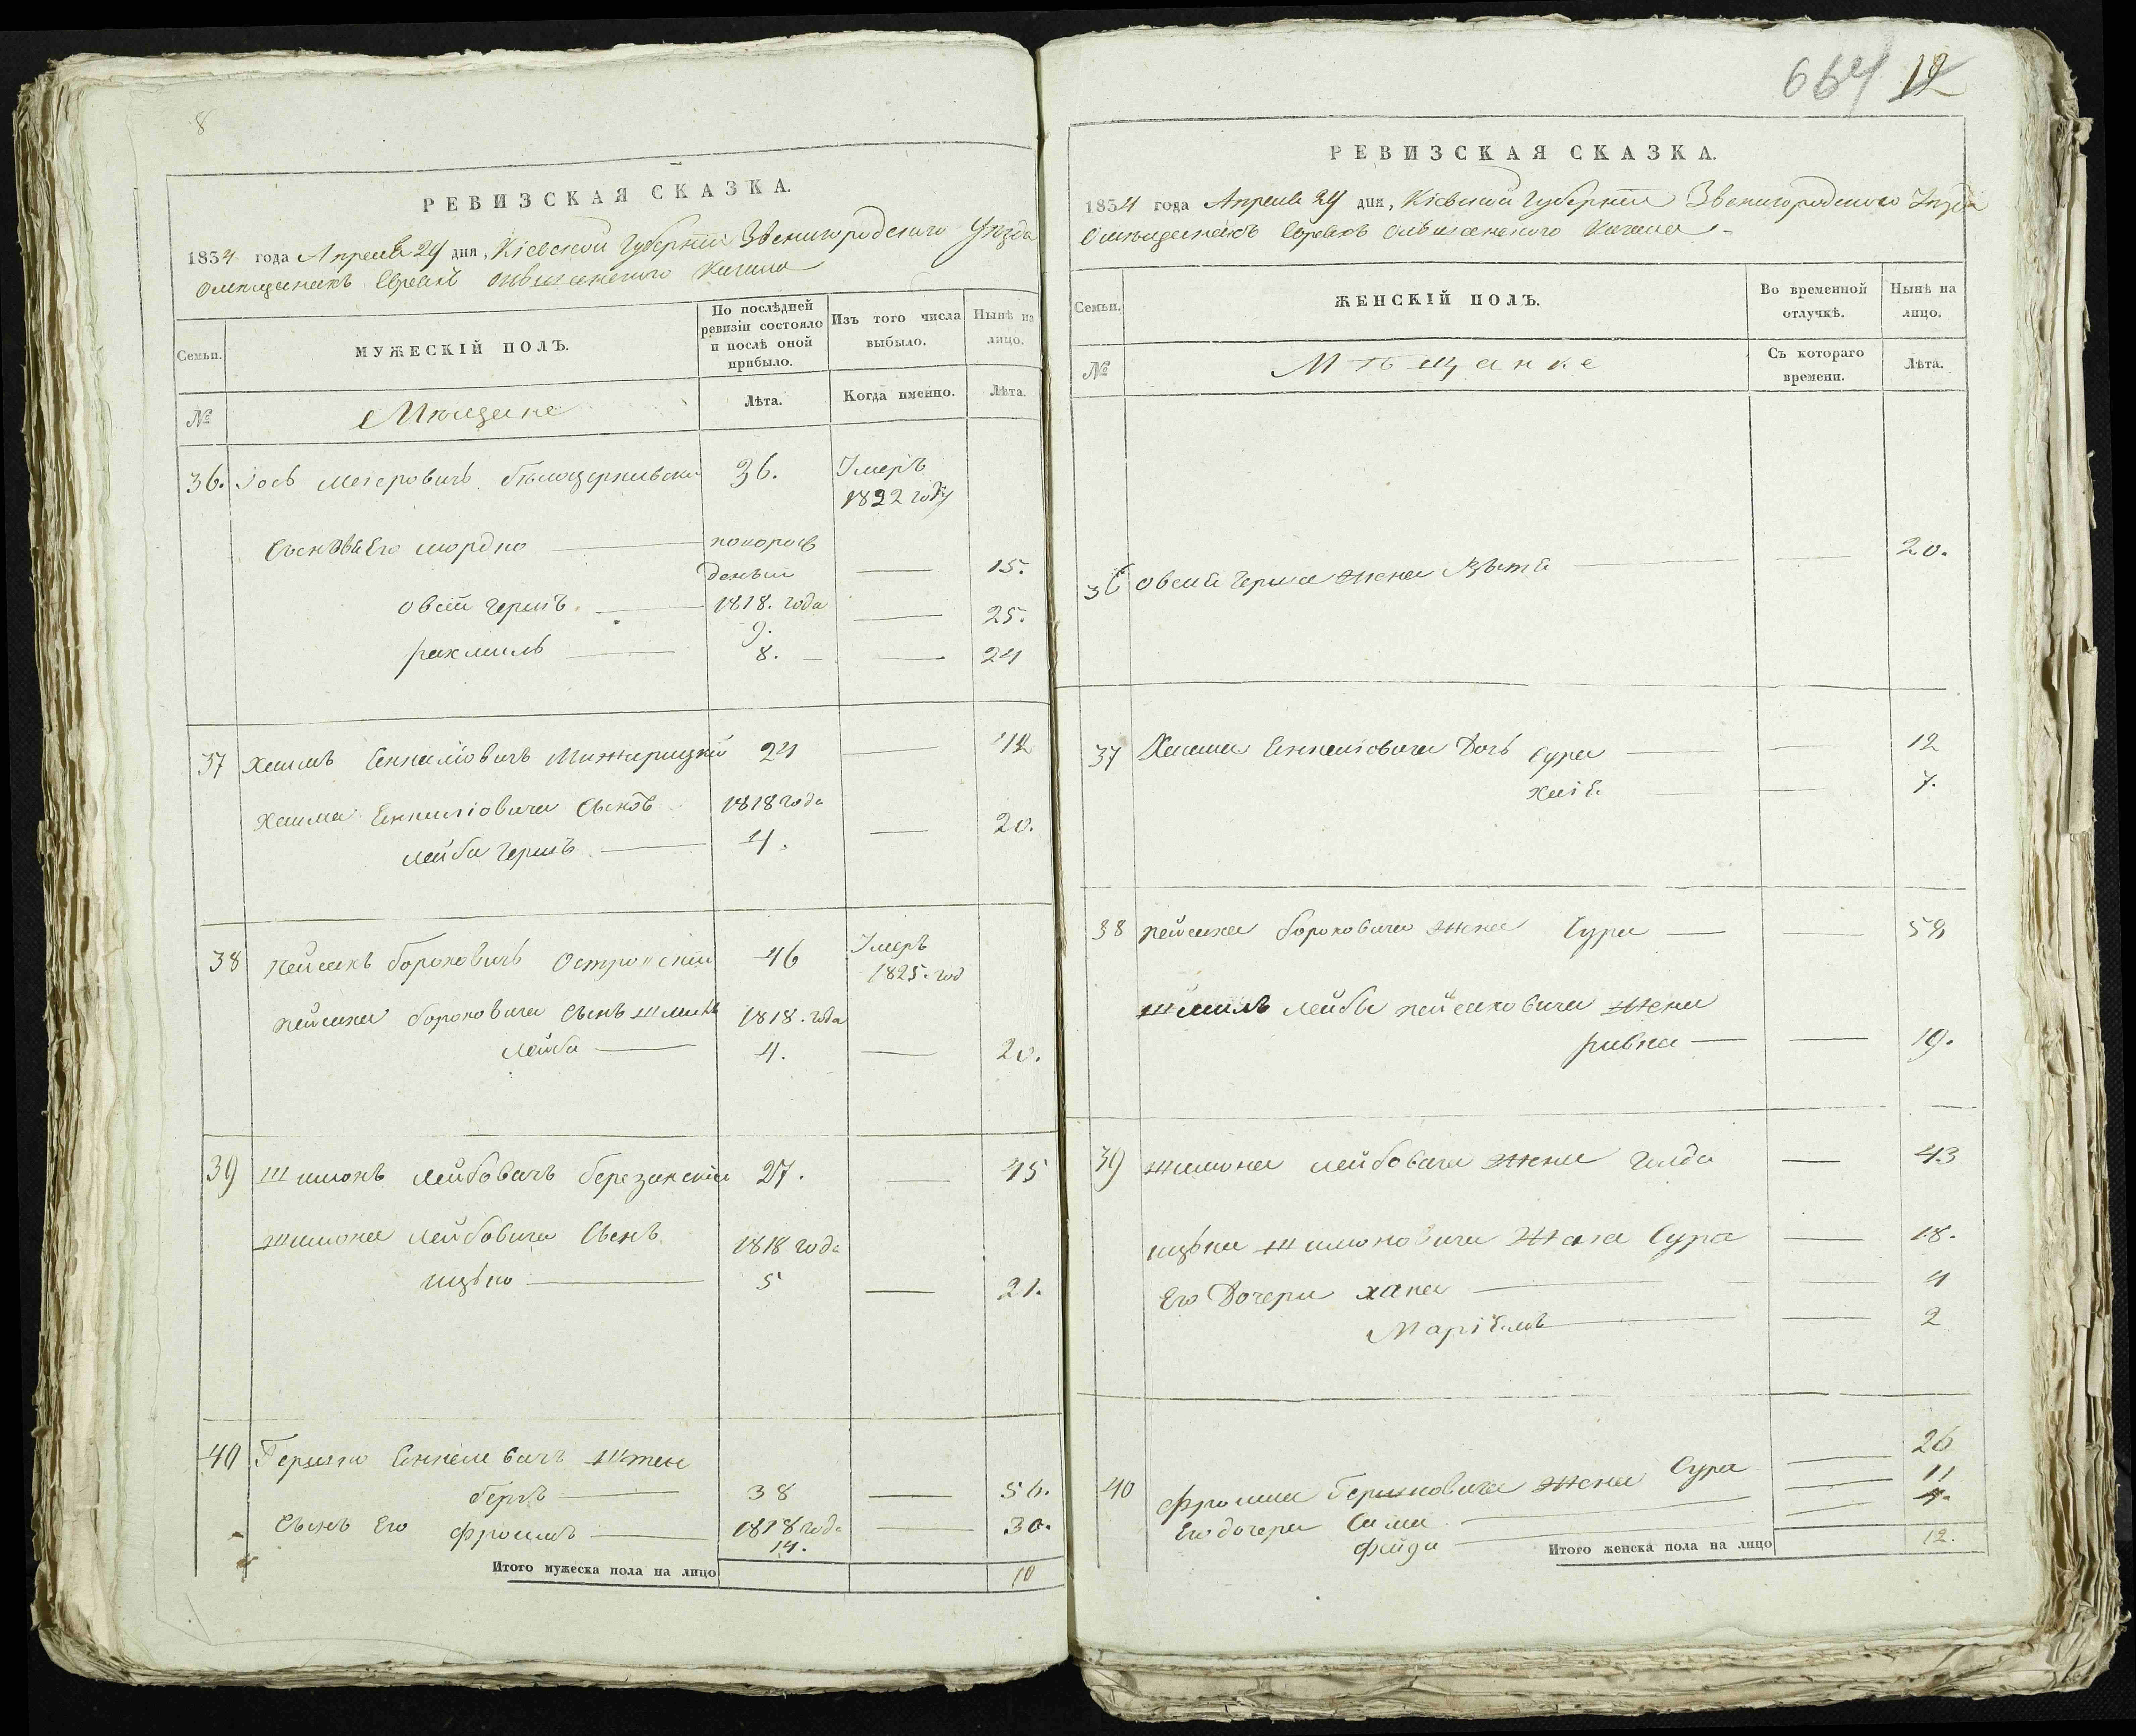 8
РЕВИЗСКАЯ СКАЗКА.
1834 года Апреля 24 дня, Кіевской Губерніи Звенигородского Уезда
Омещанахъ Евреахъ Ольшанского Кагала
Семьи.
МУЖЕСКІЙ ПОЛЪ.
По послѣдней ревизіи состояло и послѣ оной прибыло.
Изъ того числа выбыло.
Нынѣ на лицо.
№
Мещане
Лѣта.
Когда именно.
Лѣта.
36. Іосъ Меіеровичъ Белоцерковски 36. Умеръ 1822 году
Сыновья Его мордко поворож денъи 15.
Овсій Гершъ 1818. года 9. 25.
рахмиль 8. 24
37 Хаимъ Еннкеліовичъ Межирицкій 24 42
Хаима Еннкеліовича Сынъ 1818 года
лейба Гершъ 4. 20.
38 пейсахъ бороховичъ Островскій 46 Умеръ 1825. год
пейсаха бороховича Сынъ шмиль 1818. года
лейба 4. 20.
39 Шимонъ лейбовичъ березанскій 27. 45
шимона лейбовича Сынъ 1818 года
ицько 5 21.
40 Гершко Еннкелевичъ штен
бергъ 38 56.
Сынъ Его фроимъ 1818 года 14. 30.
Итого мужеска пола на лицо 10
664 12
РЕВИЗСКАЯ СКАЗКА.
1834 года Апреля 24 дня, Кіевской Губерніи Звенигородского Уезда
Омещанахъ Евреахъ Ольшанского Кагала
Семьи.
ЖЕНСКІЙ ПОЛЪ.
Во временной отлучкѣ.
Нынѣ на лицо.
№
Мѣщанке
Съ котораго времени.
Лѣта.
36 Овсія Герша жена 20.
37 Хаима Еннкеліовича Дочь Сура 12
хаія 7.
38 пейсаха бороховича жена Сура 58
шмиля лейбы пейсаховича жена
ривка 19.
39 шимона лейбовича жена Голда 43
ицька шимоновича жена Сура 18.
Его Дочери хана 4
Маріемъ 2
40 фроима Гершковича жена Сура 26
Его дочери Сима 11
фейга 4.
Итого женска пола на лицо 12.